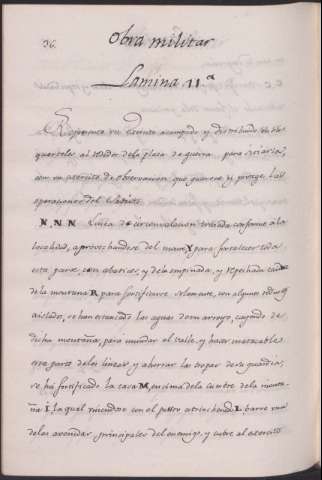 36.
Obra militar
Lamina 11ª
Representa un Exercito acampado y distribuido en sus
quarteles al rededor de la plaza de guerra para sitiarla,
con un exercito de observacion que guarnece y protege las
operaciones del
N, N, N Linea de circunvalacion trazada conforme a la
localidad, aprovechandose del Y para fortalecer toda
esta parte, con abatises, y de la empinada, y
de la montaña R para fortificarse solamente, con algunos reductos
aislados, se han estancado las aguas de un arroyo, cayendo de
dicha montaña, para inundar el valle, y hacer inatacable
esta parte de las lineas y ahorrar las tropas de su guardia,
se ha fortificado la casa M, encima de la cumbre de la monta-
ña I, la qual con el atrincherado L, barre una
de las avenidas principales del enemigo, y cubre al exercito